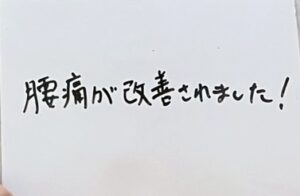 腰痛が改善されました!